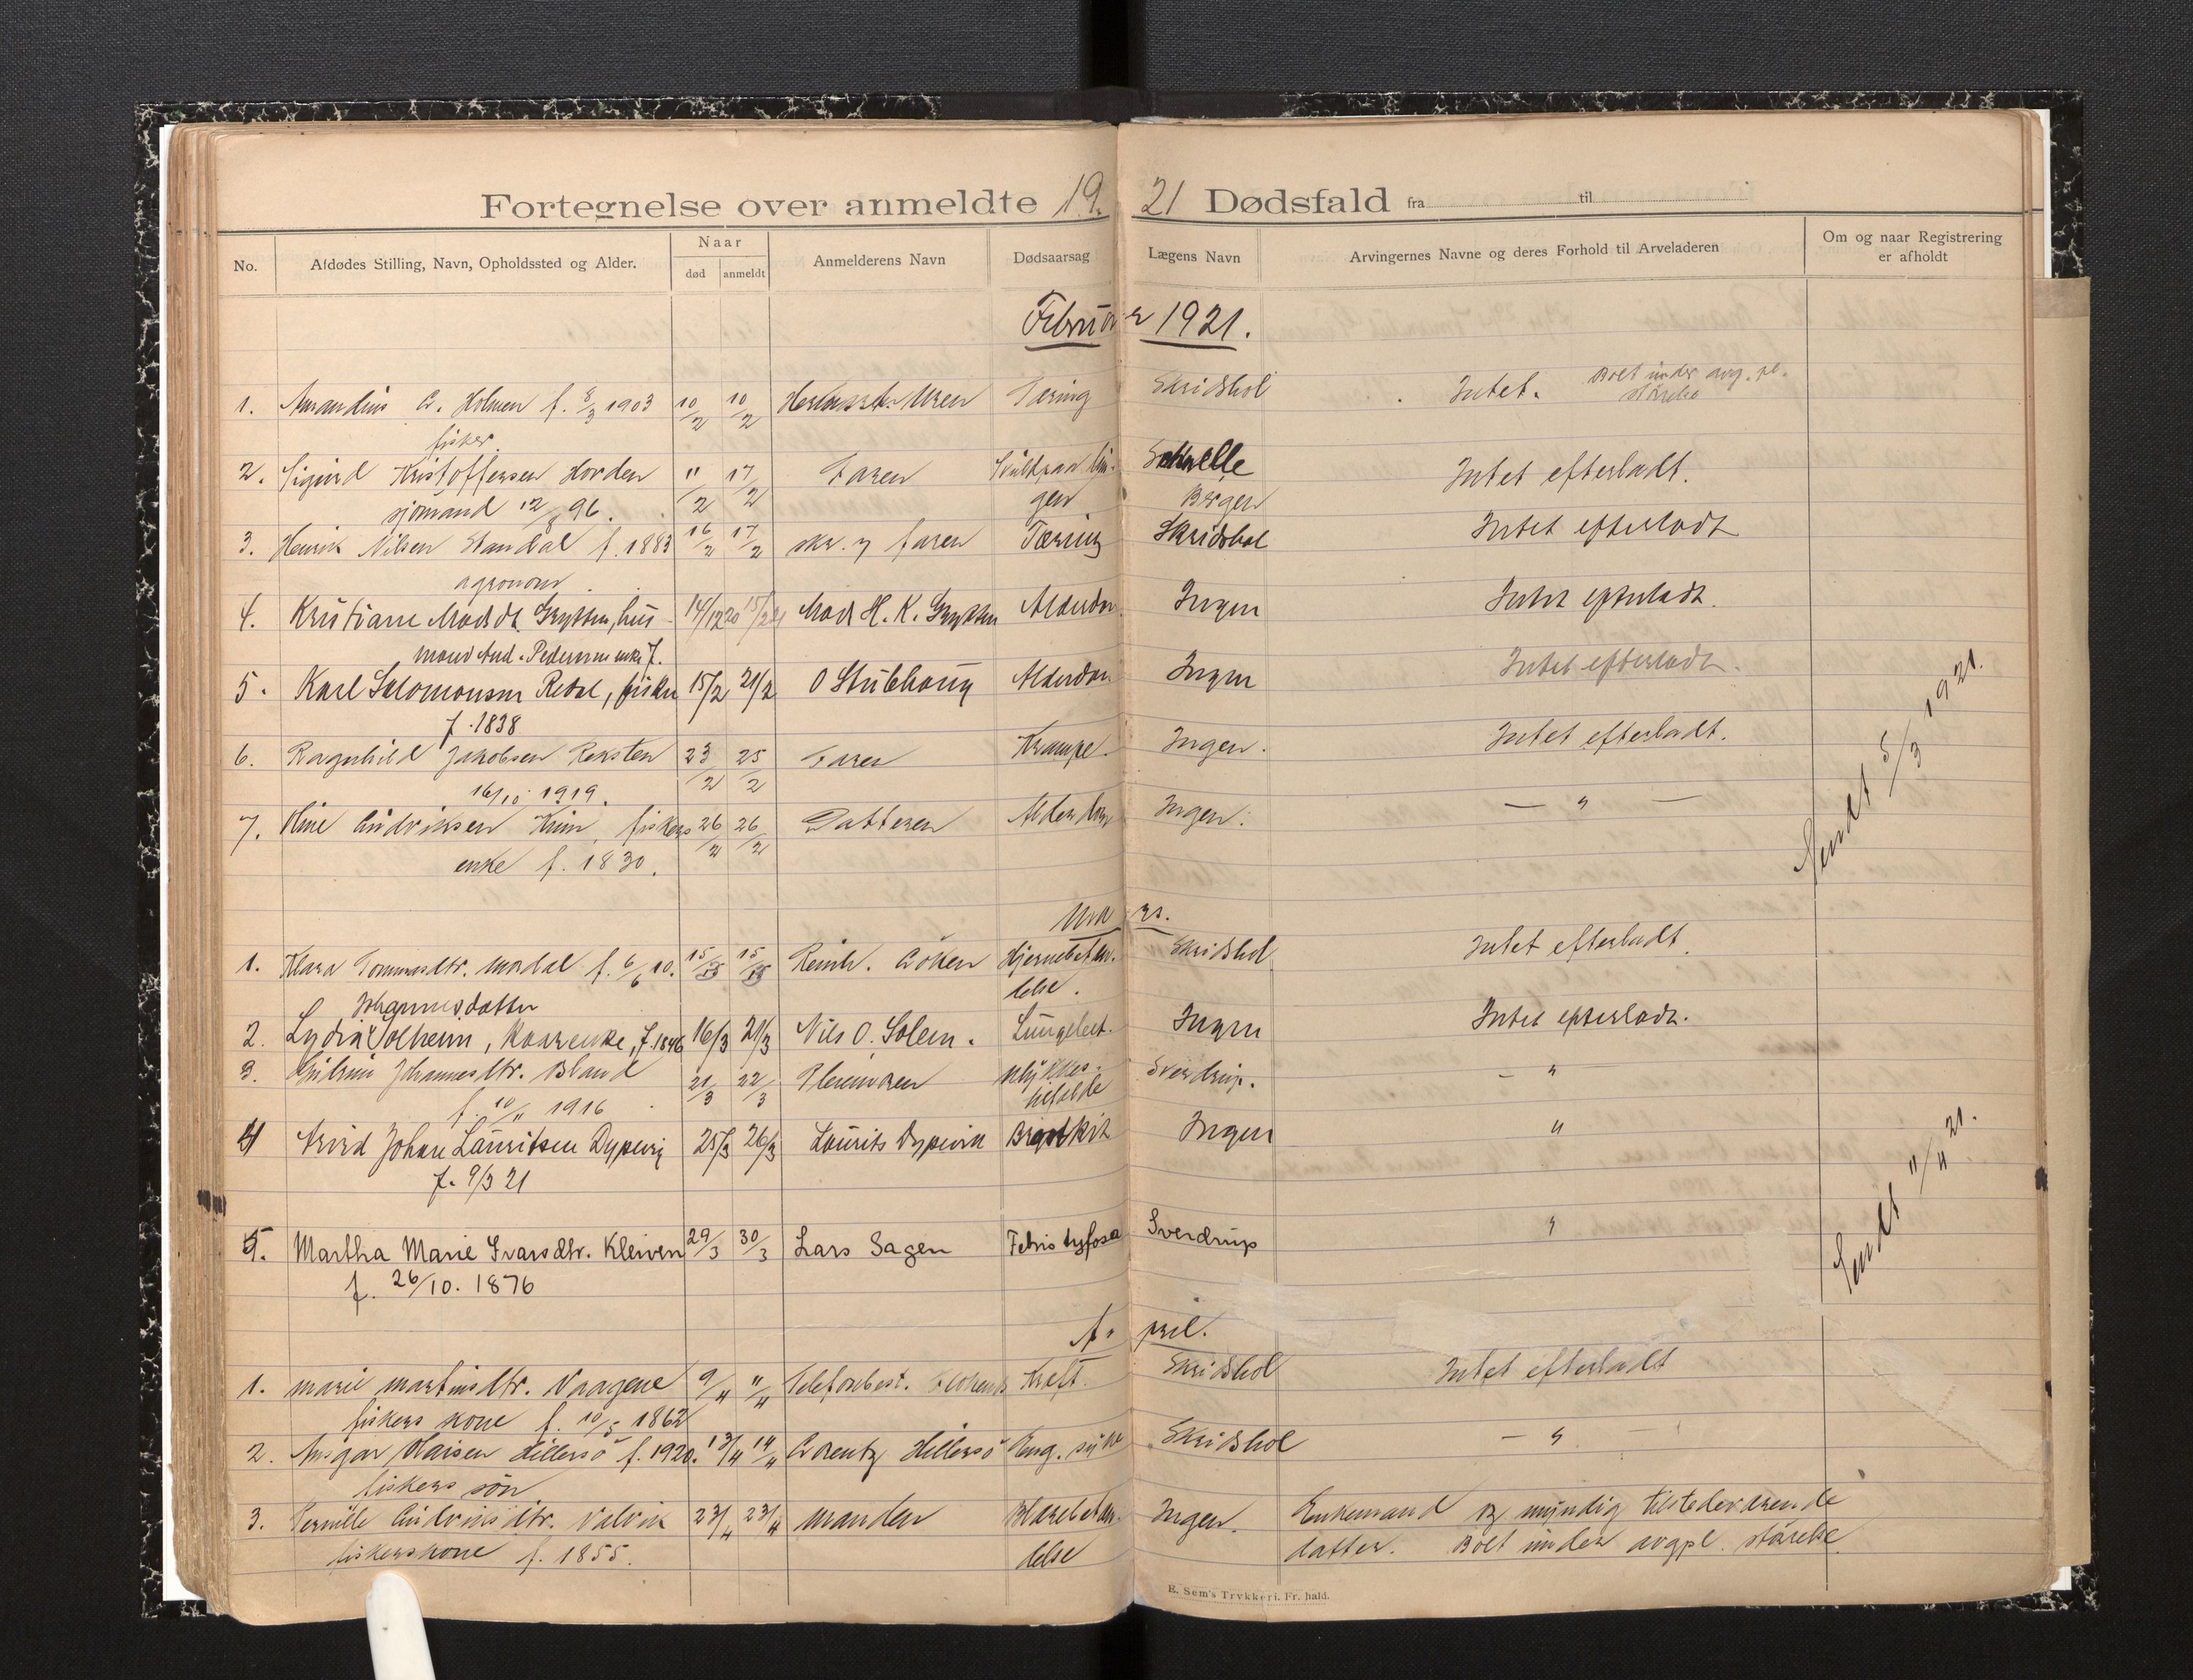 Fortegnelse over anmeldte 1921 Dødsfald fra til
No. Afdødes Stilling, Navn, Opholdssted og Alder. Naar død anmeldt Anmelderens Navn Dødsaarsag Lægens Navn Arvingernes Navne og deres Forhold til Arveladeren Om og naar Registrering er afholdt
Februar 1921.
1. Amandus A. Holmen f. 8/3 1903 10/2 10/2 Uren Tæring Skridshol Intet. Boet under avg. pl. størelse
fisker
2. Sigurd Kristoffersen Horden 11/2 17/2 Faren Schelle Intet efterladt.
sjømand 12/8 96. gen Bergen
3. Henrik Nilsen Standal f. 1883 16/2 17/2 skr. f faren Tæring Skridshol Intet efterladt
agronom
4. Kristiane Madsdt. Grytten, hus- 14/12 20 15/2 21 Mads H. K. Grytten Alderdom Ingen Intet efterladt.
mand And. Pedersens enke f.
5. Karl Salomonsen Redal, fisker 15/2 21/2 O Stubhaug Alderdom Ingen Intet efterladt.
f. 1838
6. Ragnhild Jakobsen Reksten 23/2 25/2 Faren Krampe. Ingen. Intet efterladt.
16/10 1919.
7. Andriksen fiskers 26/2 26/2 Datteren Alderdom Ingen. — " —
enke f. 1830.
Sendt 5/3 1921.
Mars.
1. Klara Tommasdtr. Mordal f. 6/6 10. 15/3 15/3 Reinh. Hjernebeten- Skridshol Intet efterladt.
delse.
Johannesdatter
2. Lydia Solheim, enke, f. 1846 16/3 21/3 Nils O. Solem. Lungebet. Ingen Intet efterladt.
3. Johannesdtr. Bland 21/3 22/3 Ulykkes- Sverdrup. - "
f. 10/11 1916 tilfælde
4 Arvid Johan Lauritsen Dypevig 25/3 26/3 Laurits Dypevik Ingen "
f. 9/3 21
5. Martha Marie Ivarsdtr. Kleiven 29/3 30/3 Lars Sagen Febris tyfosa Sverdrup "
f. 26/10. 1876
Sendt 11/4 21.
April.
1. Marie Martinsdtr. Vaagene 9/4 11/4 Telefonbest. Kræft. Skridshol Intet efterladt
fiskers kone f. 10/5 1862
2. Ansgar Olaisen Hillersø f. 1920. 13/4 14/4 Arentz Hillersø Eng. syke Skridshol — "
fiskers søn
3. Pernille Andrinsdtr. Valvik 23/4 23/4 Manden Blærebeten- Ingen. Enkemand og myndig tilstedeværende
fiskerskone f. 1855. delse datter. Boet under avgpl. størelse
E. Sem's Trykkeri. Fr. hald.